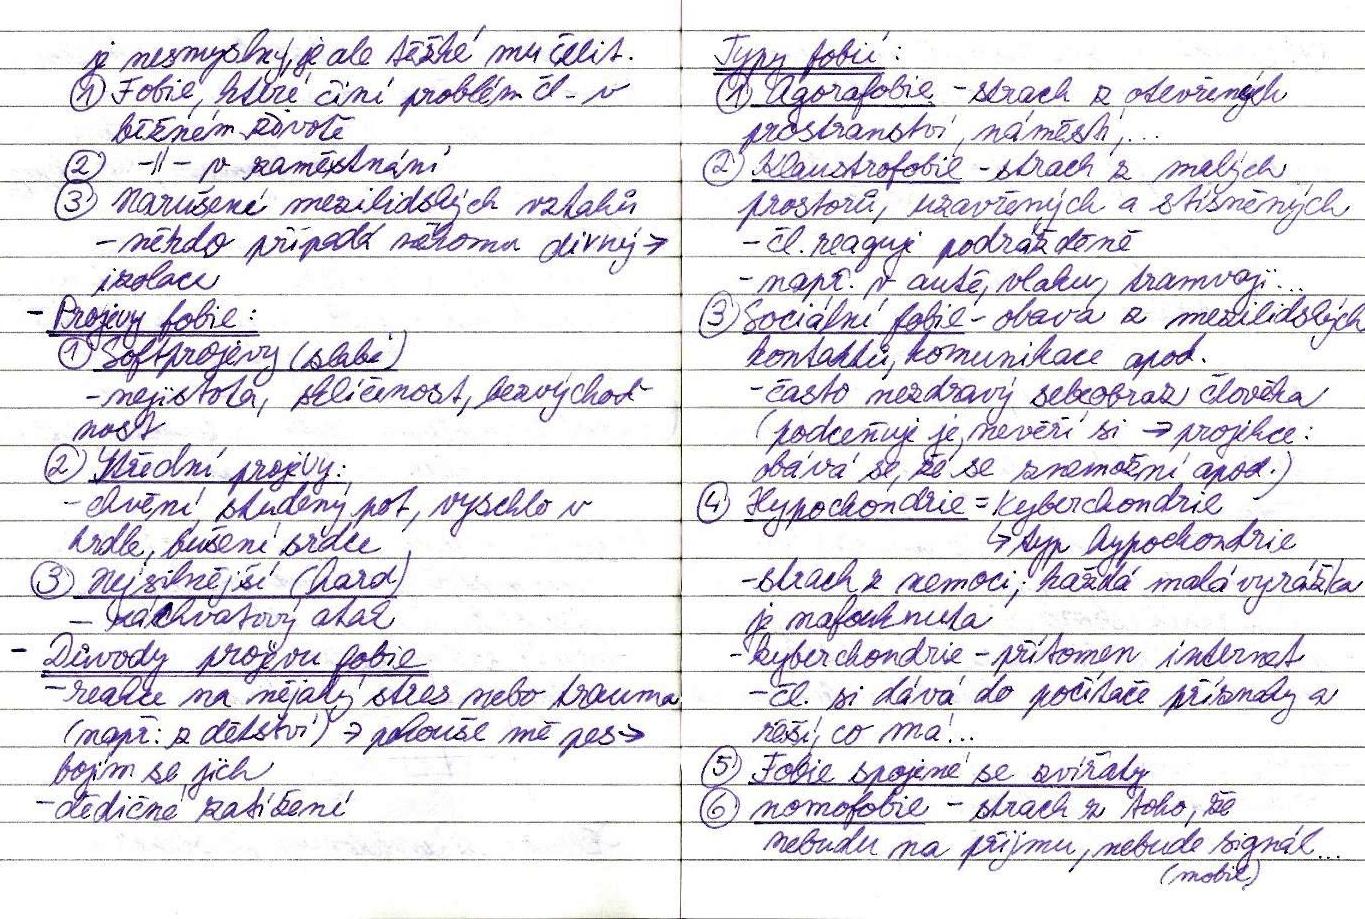 je nesmyslný, je ale těžké mu čelit.
① Fobie, které činí problém čl. v
běžném životě
② -||- v zaměstnání
③ Narušení mezilidských vztahů
- někdo připadá někomu divný →
izolace
- Projevy fobie:
① Soft projevy (slabé)
- nejistota, skličenost, bezvýchod-
nost
② Střední projevy:
- chvění, studený pot, vyschlo v
hrdle, bušení srdce
③ Nejsilnější (hard)
- záchvatový atak
- Důvody projevu fobie
- reakce na nějaký stres nebo trauma
(např. z dětství) → pokouše mě pes →
bojím se jich
- dědičné zatížení
Typy fobií:
① Agorafobie - strach z otevřených
prostranství, náměstí,...
② Klaustrofobie - strach z malých
prostorů, uzavřených a stísněných
- čl. reaguje podrážděně
- např. v autě, vlaku, tramvaji...
③ Sociální fobie - obava z mezilidských
kontaktů, komunikace apod.
- často nezdravý sebeobraz člověka
(podceňuje je, nevěří si → projekce:
obává se, že se znemožní apod.)
④ Hypochondrie = Kyberchondrie
↳ typ hypochondrie
- strach z nemoci; každá malá vyrážka
je nafouknuta
- kyberchondrie - přítomen internet
- čl. si dává do počítače příznaky a
řeší, co má!...
⑤ Fobie spojené se zvířaty
⑥ nomofobie - strach z toho, že
nebudu na příjmu, nebude signál...
(mobil)